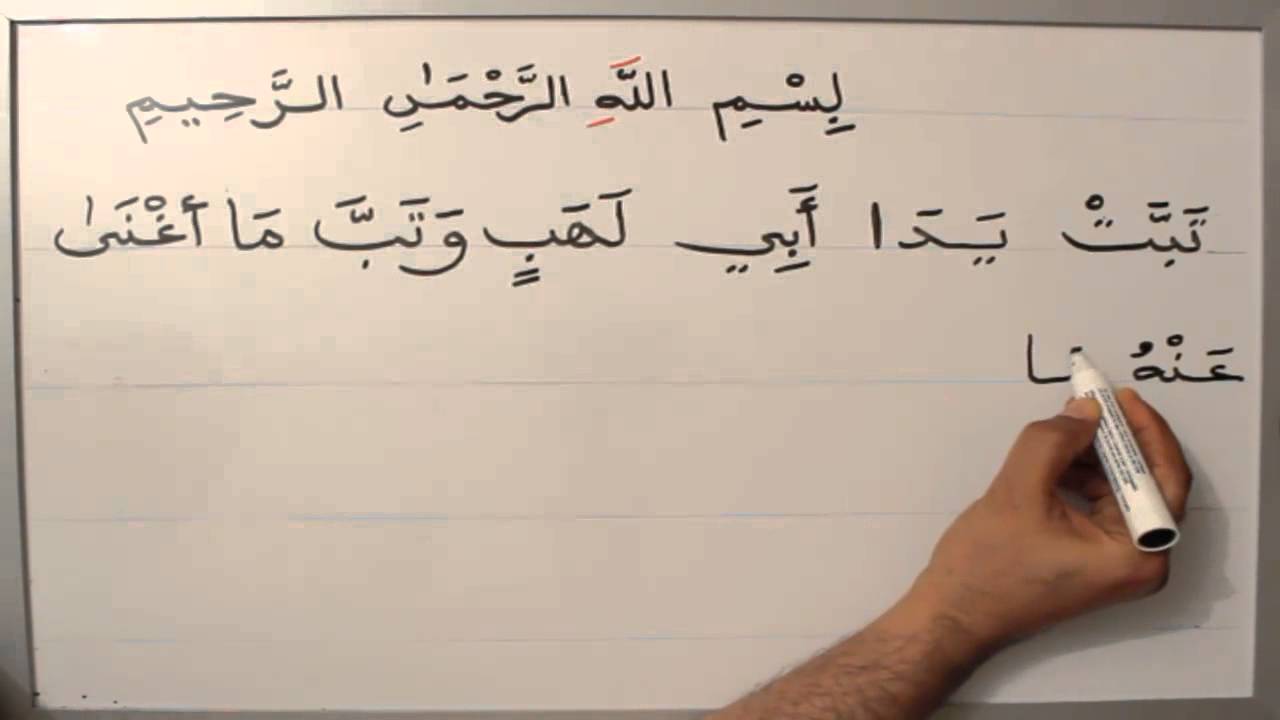 بِسْمِ اللَّهِ الرَّحْمَٰنِ الرَّحِيمِ
تَبَّتْ يَدَا أَبِي لَهَبٍ وَتَبَّ مَا أَغْنَىٰ
عَنْهُ